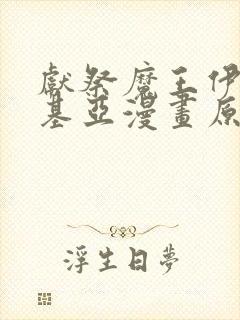 獻祭魔王伊
基亞漫畫原
浮生日夢